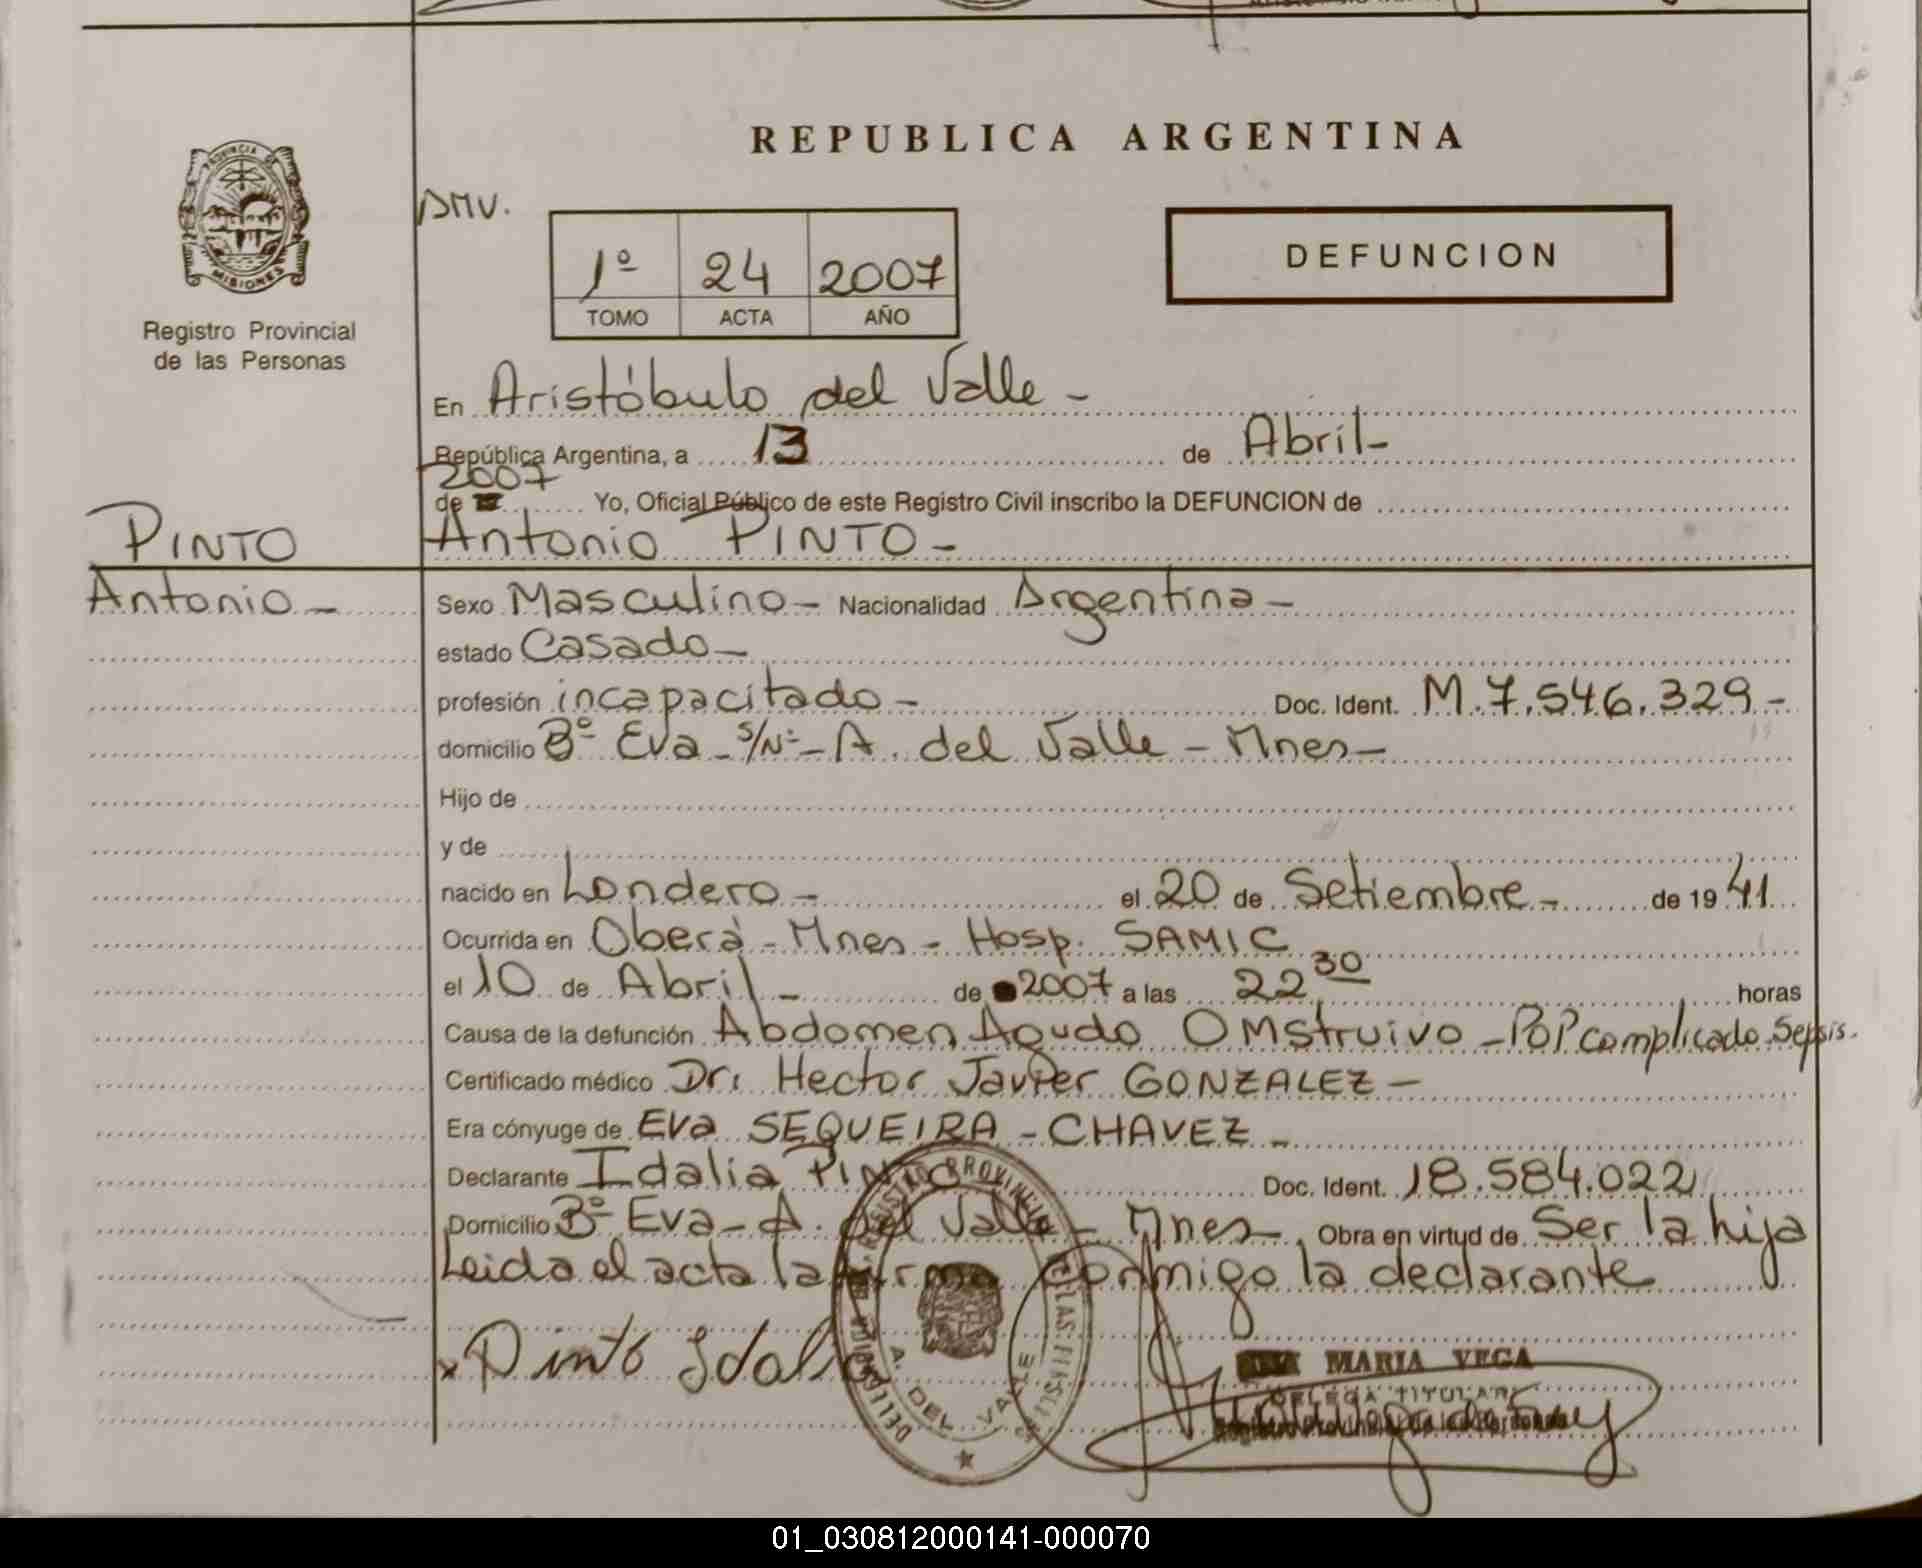 REPUBLICA ARGENTINA
PROVINCIA DE
MISIONES
Registro Provincial
de las Personas
AMV.
1º 24 2007
TOMO ACTA AÑO
DEFUNCION
En Aristóbulo del Valle -
República Argentina, a 13 de Abril -
2007
de Yo, Oficial Público de este Registro Civil inscribo la DEFUNCION de
PINTO Antonio PINTO -
Antonio - Sexo Masculino - Nacionalidad Argentina -
estado Casado -
profesión incapacitado - Doc. Ident. M.7.546.329 -
domicilio Bº Eva - S/Nº - A. del Valle - Mnes -
Hijo de
y de
nacido en Londero - el 20 de Setiembre - de 19 41
Ocurrida en Oberá - Mnes - Hosp. SAMIC
el 10 de Abril - de 2007 a las 22 30 horas
Causa de la defunción Abdomen Agudo OMstruivo - POP complicado Sepsis.
Certificado médico Dr. Hector Javier GONZALEZ -
Era cónyuge de Eva SEQUEIRA - CHAVEZ -
Declarante Idalia PINTO Doc. Ident. 18.584.022
Domicilio Bº Eva - A. del Valle - Mnes - Obra en virtud de Ser la hija
Leida el acta la firma conmigo la declarante
x Pinto Idalia
REGISTRO PROVINCIAL DE LAS PERSONAS
A. DEL VALLE
MARIA VEGA
DELEGADA TITULAR
Registro Provincial de las Personas
01_030812000141-000070